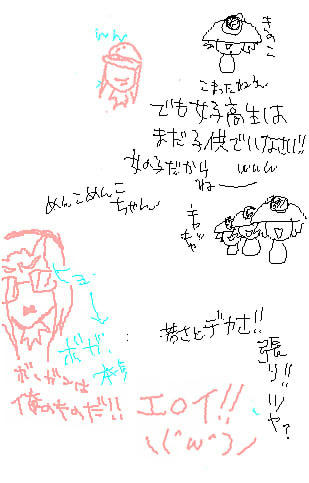 きのこ
こまったねぇ
でも女子高生は
まだ子供でいなさい!!
女の子だから www
ね
めんこめんこ
ちゃん
キャ
キャ
ヒュ
ボガ
ボーガンは
俺のものだ!!
若さとデカさ!!
張り!!ツヤ?
エロイ!!
\(^w^)/